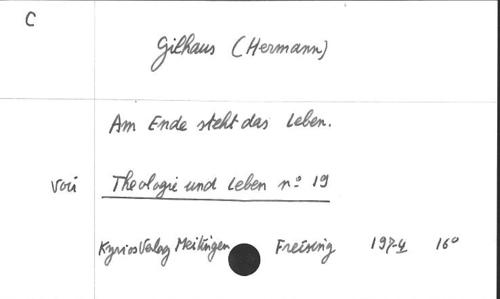 C
Gilhaus (Hermann)
Am Ende steht das Leben.
Voir Theologie und Leben nº 19
Kyrios Verlag Meitingen Freising 1974 16º